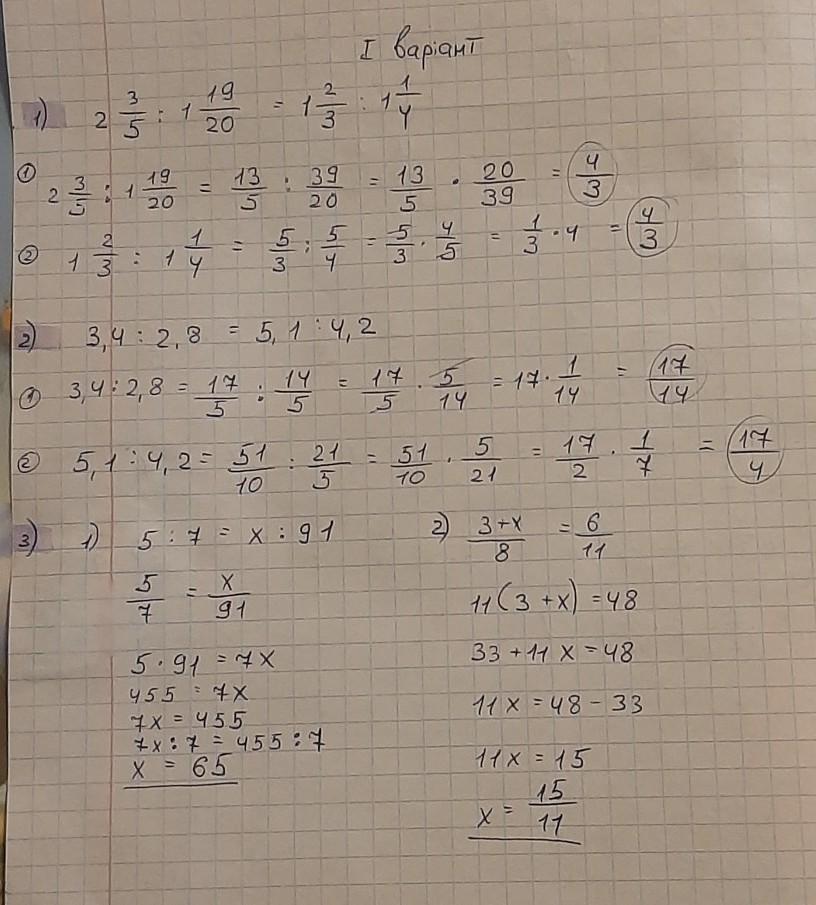 I варіант
1) 2 3/5 : 1 19/20 = 1 2/3 : 1 1/4
① 2 3/5 : 1 19/20 = 13/5 : 39/20 = 13/5 · 20/39 = 4/3
② 1 2/3 : 1 1/4 = 5/3 : 5/4 = 5/3 · 4/5 = 1/3 · 4 = 4/3
2) 3,4 : 2,8 = 5,1 : 4,2
① 3,4 : 2,8 = 17/5 : 14/5 = 17/5 · 5/14 = 17 · 1/14 = 17/14
② 5,1 : 4,2 = 51/10 : 21/5 = 51/10 · 5/21 = 17/2 · 1/7 = 17/4
3) 1) 5 : 7 = x : 91
5/7 = x/91
5 · 91 = 7x
455 = 7x
7x = 455
7x : 7 = 455 : 7
x = 65
2) 3+x/8 = 6/11
11(3 + x) = 48
33 + 11x = 48
11x = 48 - 33
11x = 15
x = 15/11